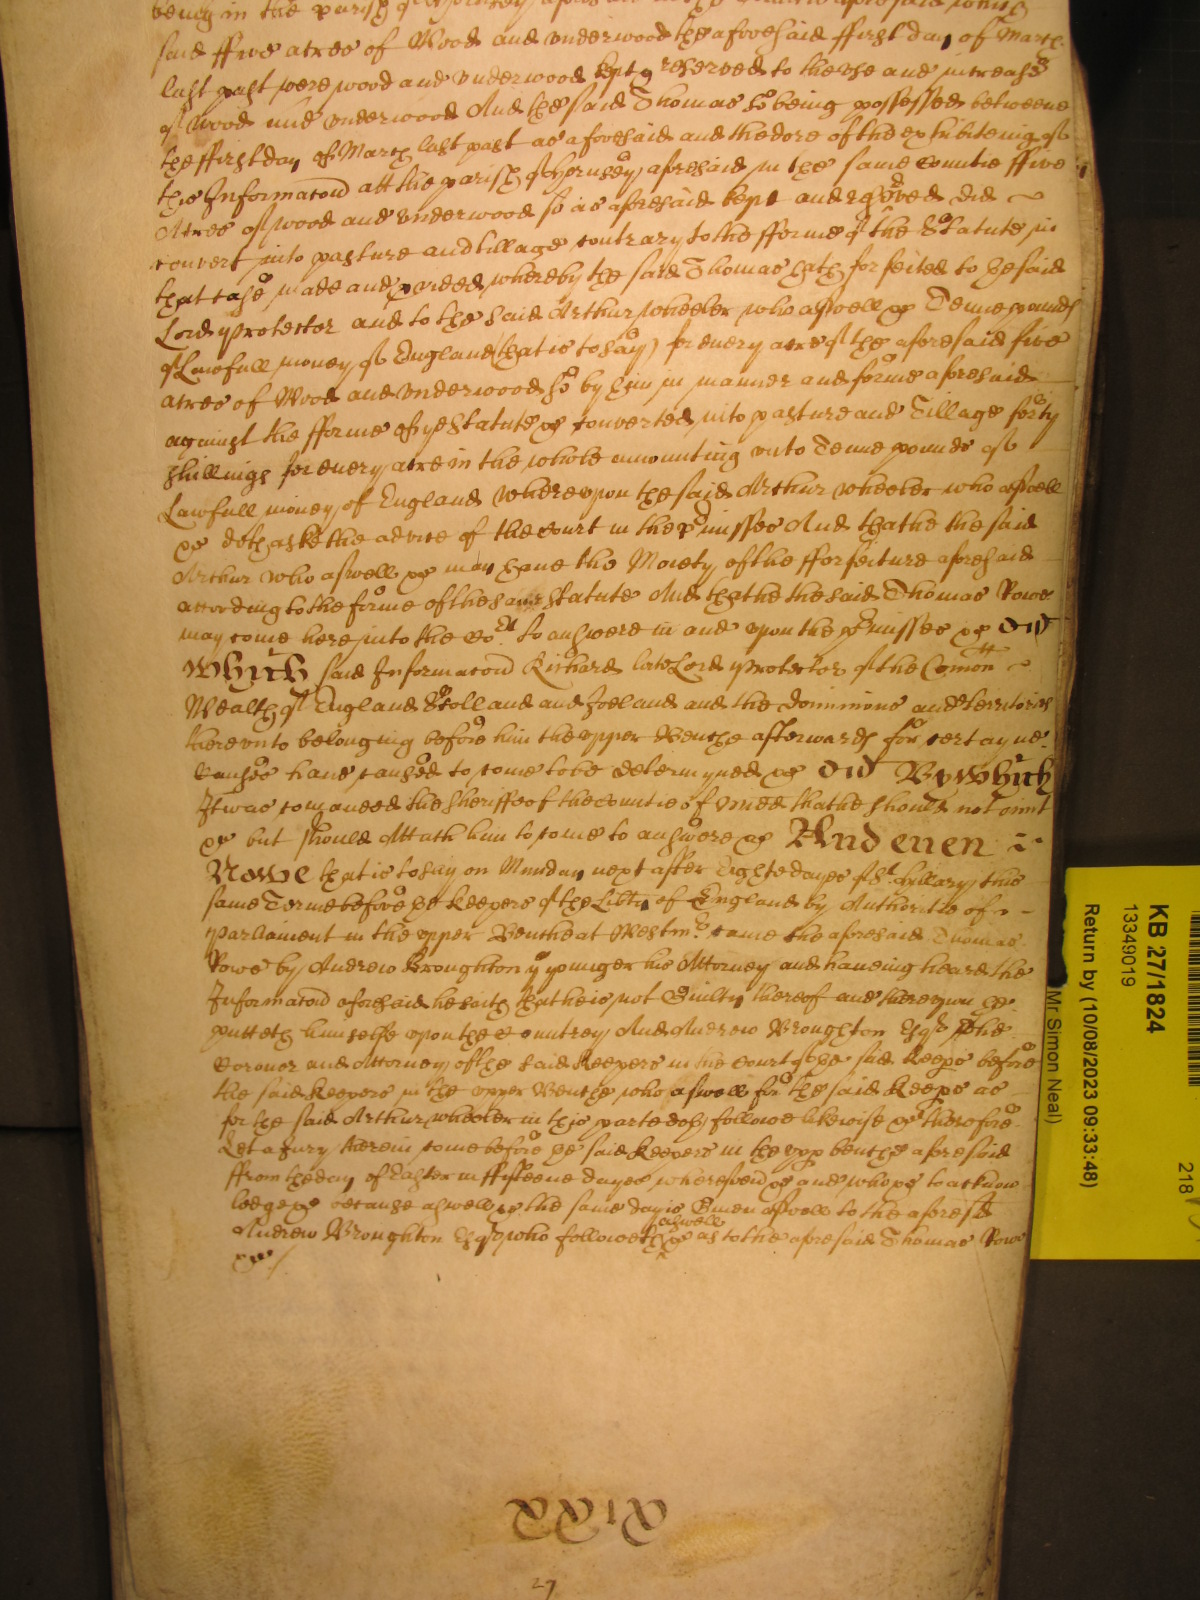 being in the parish of Hornsey aforesaid in the Countie aforesaid which
said ffive acres of Wood and underwood the aforesaid ffirst day of March
last past were wood and underwood kept & reserved to the use and increase
of Wood and underwood And the said Thomas so being possessed betweene
the ffirst day of March last past as aforesaid and the dore of the exhibiteing of
this Informacon att the parish of Hornsey aforesaid in the same Countie ffive
Acres of wood and underwood so as aforesaid kept and reserved did
convert into pasture and tillage contrary to the fforme of the Statute in
that case made and pvided whereby the said Thomas hath forfeited to the said
Lord Protector and to the said Arthur Wheeler who aswell &c Tenne pounds
of Lawfull money of England (that is to say) for every acre of the aforesaid five
acres of Wood and underwood so by him in manner and forme aforesaid
against the fforme of ye Statute &c converted into pasture and Tillage forty
shillings for every acre in the whole amounting unto Tenne pounds of
Lawfull money of England Whereupon the said Arthur Wheeler who aswell
&c doth aske the advice of the Court in the pmisses And that he the said
Arthur who aswell &c may have the Moiety of the fforfeiture aforesaid
according to the forme of the same Statute And that he the said Thomas Rowe
may come here into the Cort to answere in and upon the pmisses &c
Which said Informacon Richard late Lord Protector of the Comon
Wealth of England Scotland and Ireland and the dominions and territories
thereunto belonging before him the upper Benche afterwards for certayne
Causes have caused to come to be determyned &c By Which
It was comanded the Sheriffe of the Countie of Midd that he should not omit
&c but should Attach him to come to answere &c And even
Nowe that is to say on Munday next after Eight dayes of St Hillary this
same Terme before the Keepers of the Libty of England by Authoritie of
Parliament in the upper Benche at Westmr came the aforesaid Thomas
Rowe by Andrew Broughton ye younger his Attorney and haveing heard the
Informacon aforesaid he saith that he is not Guilty thereof and thereupon he
putteth himselfe upon the Countrey And Andrew Broughton Esqr the
Coroner and Attorney of the said Keepers in the Court of the said Keeps before
the said Keepers in the upper Benche who aswell for the said Keeps as
for the said Arthur Wheeler in this parte doth followe likewise &c Therefore
Let a Jury therein come before the said Keepers in the upp benche aforesaid
ffrom the day of Easter in ffifteene dayes wheresoevr &c and who &c to acknow
ledge &c because aswell &c the same day is Given aswell to the aforesd
aswell
Andrew Broughton Esqr who followeth &c as to the aforesaid Thomas Rowe
&c
27
KB 27/1824
13349019
Return by (10/08/2023 09:33:48)
Mr Simon Neal)
218